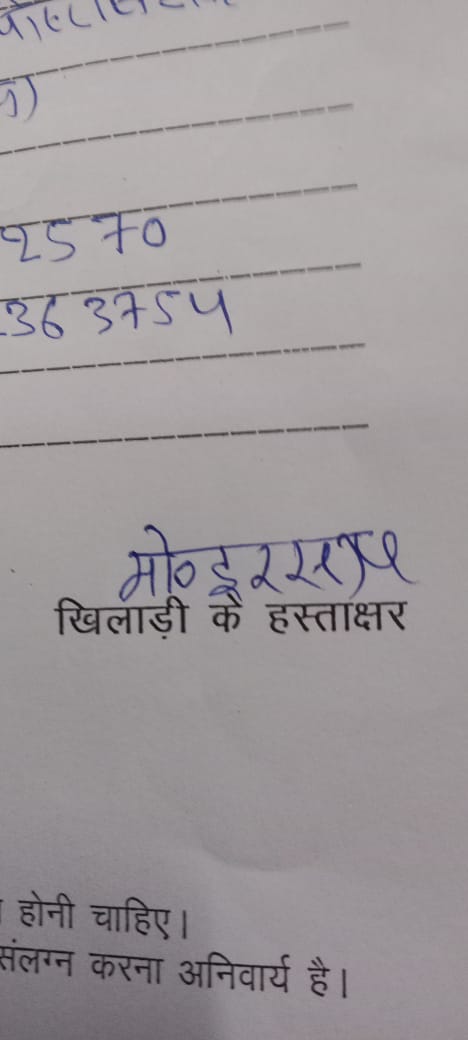 2570
363754
मो०
खिलाड़ी के हस्ताक्षर
होनी चाहिए।
संलग्न करना अनिवार्य है।